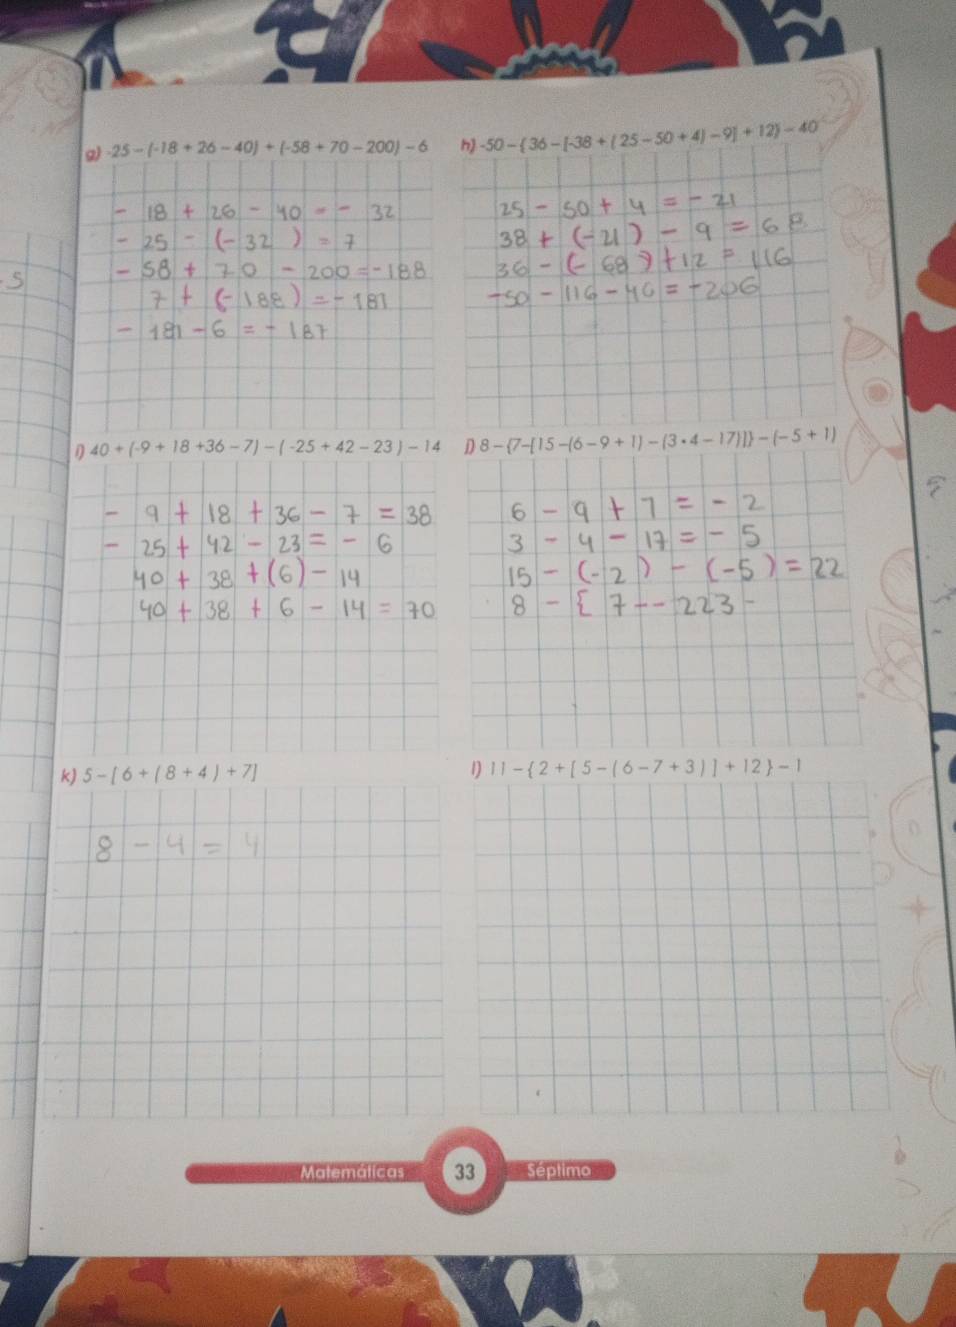 g) -25-(-18+26-40)+(-58+70-200)-6
- 18 + 26 - 40 = - 32
- 25 - (-32 ) = 7
- 58 + 70 - 200 = -188
7 + (-188) = - 181
- 181 - 6 = - 187
h) -50-{36-[-38+(25-50+4)-9]+12}-40
25 - 50 + 4 = - 21
38 + (-21) - 9 = 68
36 - (- 68) + 12 = 116
-50 - 116 - 40 = -206
S
i) 40+(-9+18+36-7)-(-25+42-23)-14
- 9 + 18 + 36 - 7 = 38
- 25 + 42 - 23 = - 6
40 + 38 + (6) - 14
40 + 38 + 6 - 14 = 70
j) 8-{7-[15-(6-9+1)-(3•4-17)]}-(-5+1)
6 - 9 + 1 = - 2
3 - 4 - 17 = - 5
15 - (-2 ) - (-5 ) = 22
8 - { 7 - - 223 -
k) 5-[6+(8+4)+7]
8 - 4 = 4
l) 11-{2+[5-(6-7+3)]+12}-1
Matemáticas 33 Séptimo